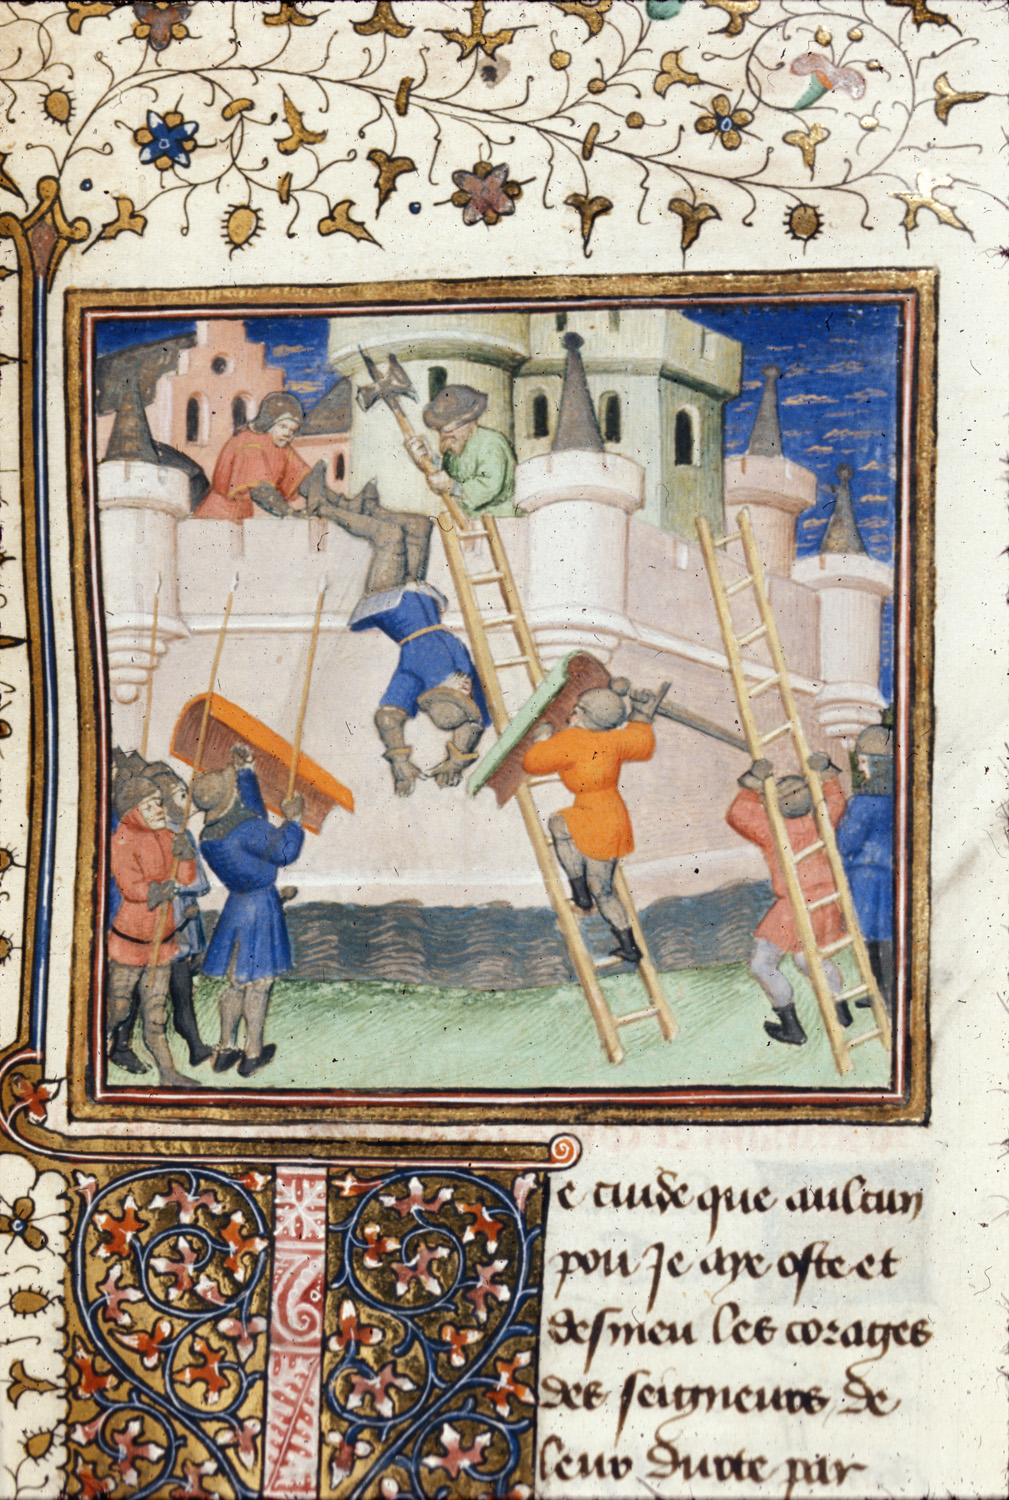 Je cuide que aulcun
pou Je aye oste et
desmeu les corages
des seigneurs de
leur durte par